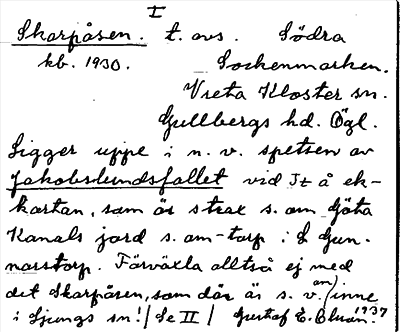 I
Skarpåsen. t. avs. Södra
kb. 1930. Sockenmarken.
Vreta Kloster sn.
Gullbergs hd. Ögl.
Ligger uppe i n. v. spetsen av
Jakobslundsfallet vid It å ek-
kartan, som är strax s. om Göta
Kanals jord s. om-torp i L Gun-
narstorp. Förväxla alltså ej med
det Skarpåsen, som där är s. v. om/inne
i Ljungs sn! / Se II / Gustaf E. 1937